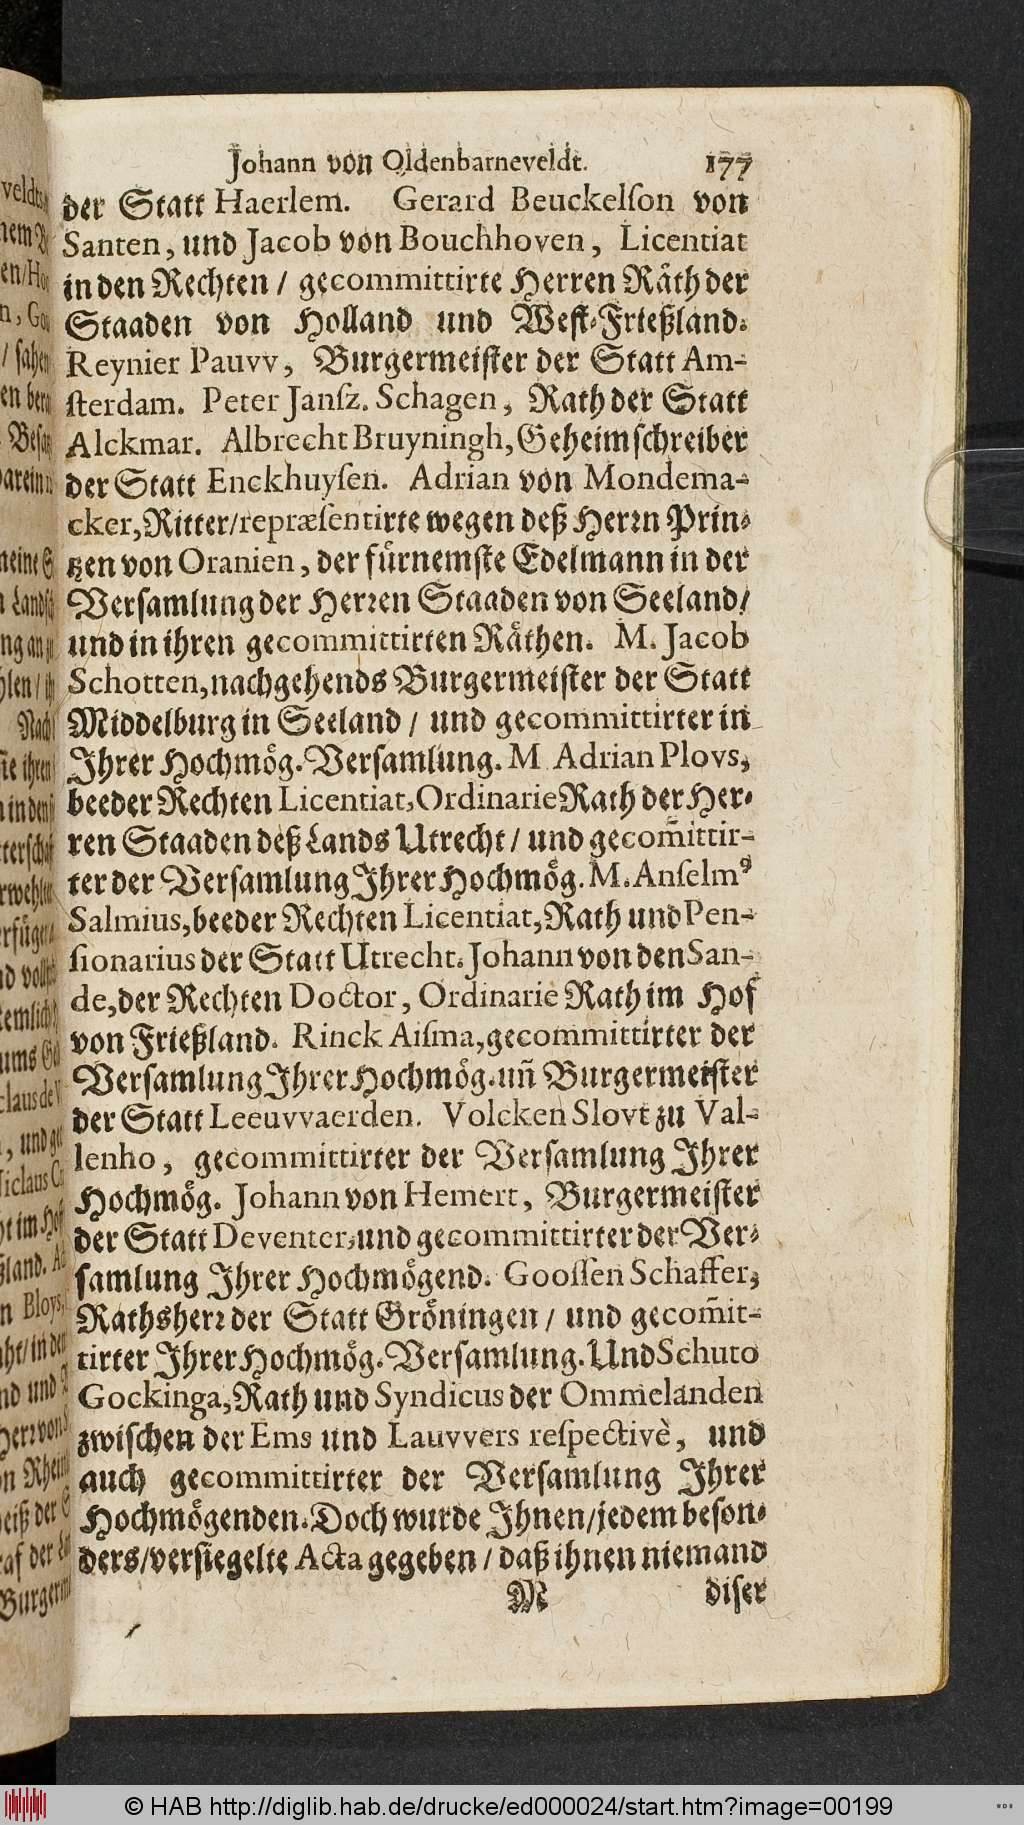 Johann von Oldenbarneveldt. 177
der Statt Haerlem. Gerard Beuckelſon von
Santen, und Jacob von Bouchhoven, Licentiat
in den Rechten / gecommittirte Herren Räth der
Staaden von Holland und Weſt-Frießland.
Reynier Pauvv, Burgermeiſter der Statt Am-
ſterdam. Peter Janſz. Schagen, Rath der Statt
Alckmar. Albrecht Bruyningh, Geheimſchreiber
der Statt Enckhuyſen. Adrian von Mondema-
cker, Ritter/repræſentirte wegen deß Herrn Prin-
tzen von Oranien, der fürnemſte Edelmann in der
Verſamlung der Herren Staaden von Seeland/
und in ihren gecommittirten Räthen. M. Jacob
Schotten, nachgehends Burgermeiſter der Statt
Middelburg in Seeland / und gecommittirter in
Ihrer Hochmög. Verſamlung. M Adrian Plovs,
beeder Rechten Licentiat, Ordinarie Rath der Her-
ren Staaden deß Lands Utrecht / und gecom̃ittir-
ter der Verſamlung Ihrer Hochmög. M. Anſelmꝰ
Salmius, beeder Rechten Licentiat, Rath und Pen-
ſionarius der Statt Utrecht. Johann von den San-
de, der Rechten Doctor, Ordinarie Rath im Hof
von Frießland. Rinck Aiſma, gecommittirter der
Verſamlung Ihrer Hochmög. uñ Burgermeiſter
der Statt Leeuvvaerden. Volcken Slovt zu Val-
lenho, gecommittirter der Verſamlung Ihrer
Hochmög. Johann von Hemert, Burgermeiſter
der Statt Deventer, und gecommittirter der Ver-
ſamlung Ihrer Hochmögend. Gooſſen Schaffer,
Rathsherr der Statt Gröningen / und gecom̃it-
tirter Ihrer Hochmög. Verſamlung. Und Schuto
Gockinga, Rath und Syndicus der Ommelanden
zwiſchen der Ems und Lauvvers reſpectivè, und
auch gecommittirter der Verſamlung Ihrer
Hochmögenden. Doch wurde Ihnen/jedem beſon-
ders/verſiegelte Acta gegeben / daß ihnen niemand
M diſer
© HAB http://diglib.hab.de/drucke/ed000024/start.htm?image=00199